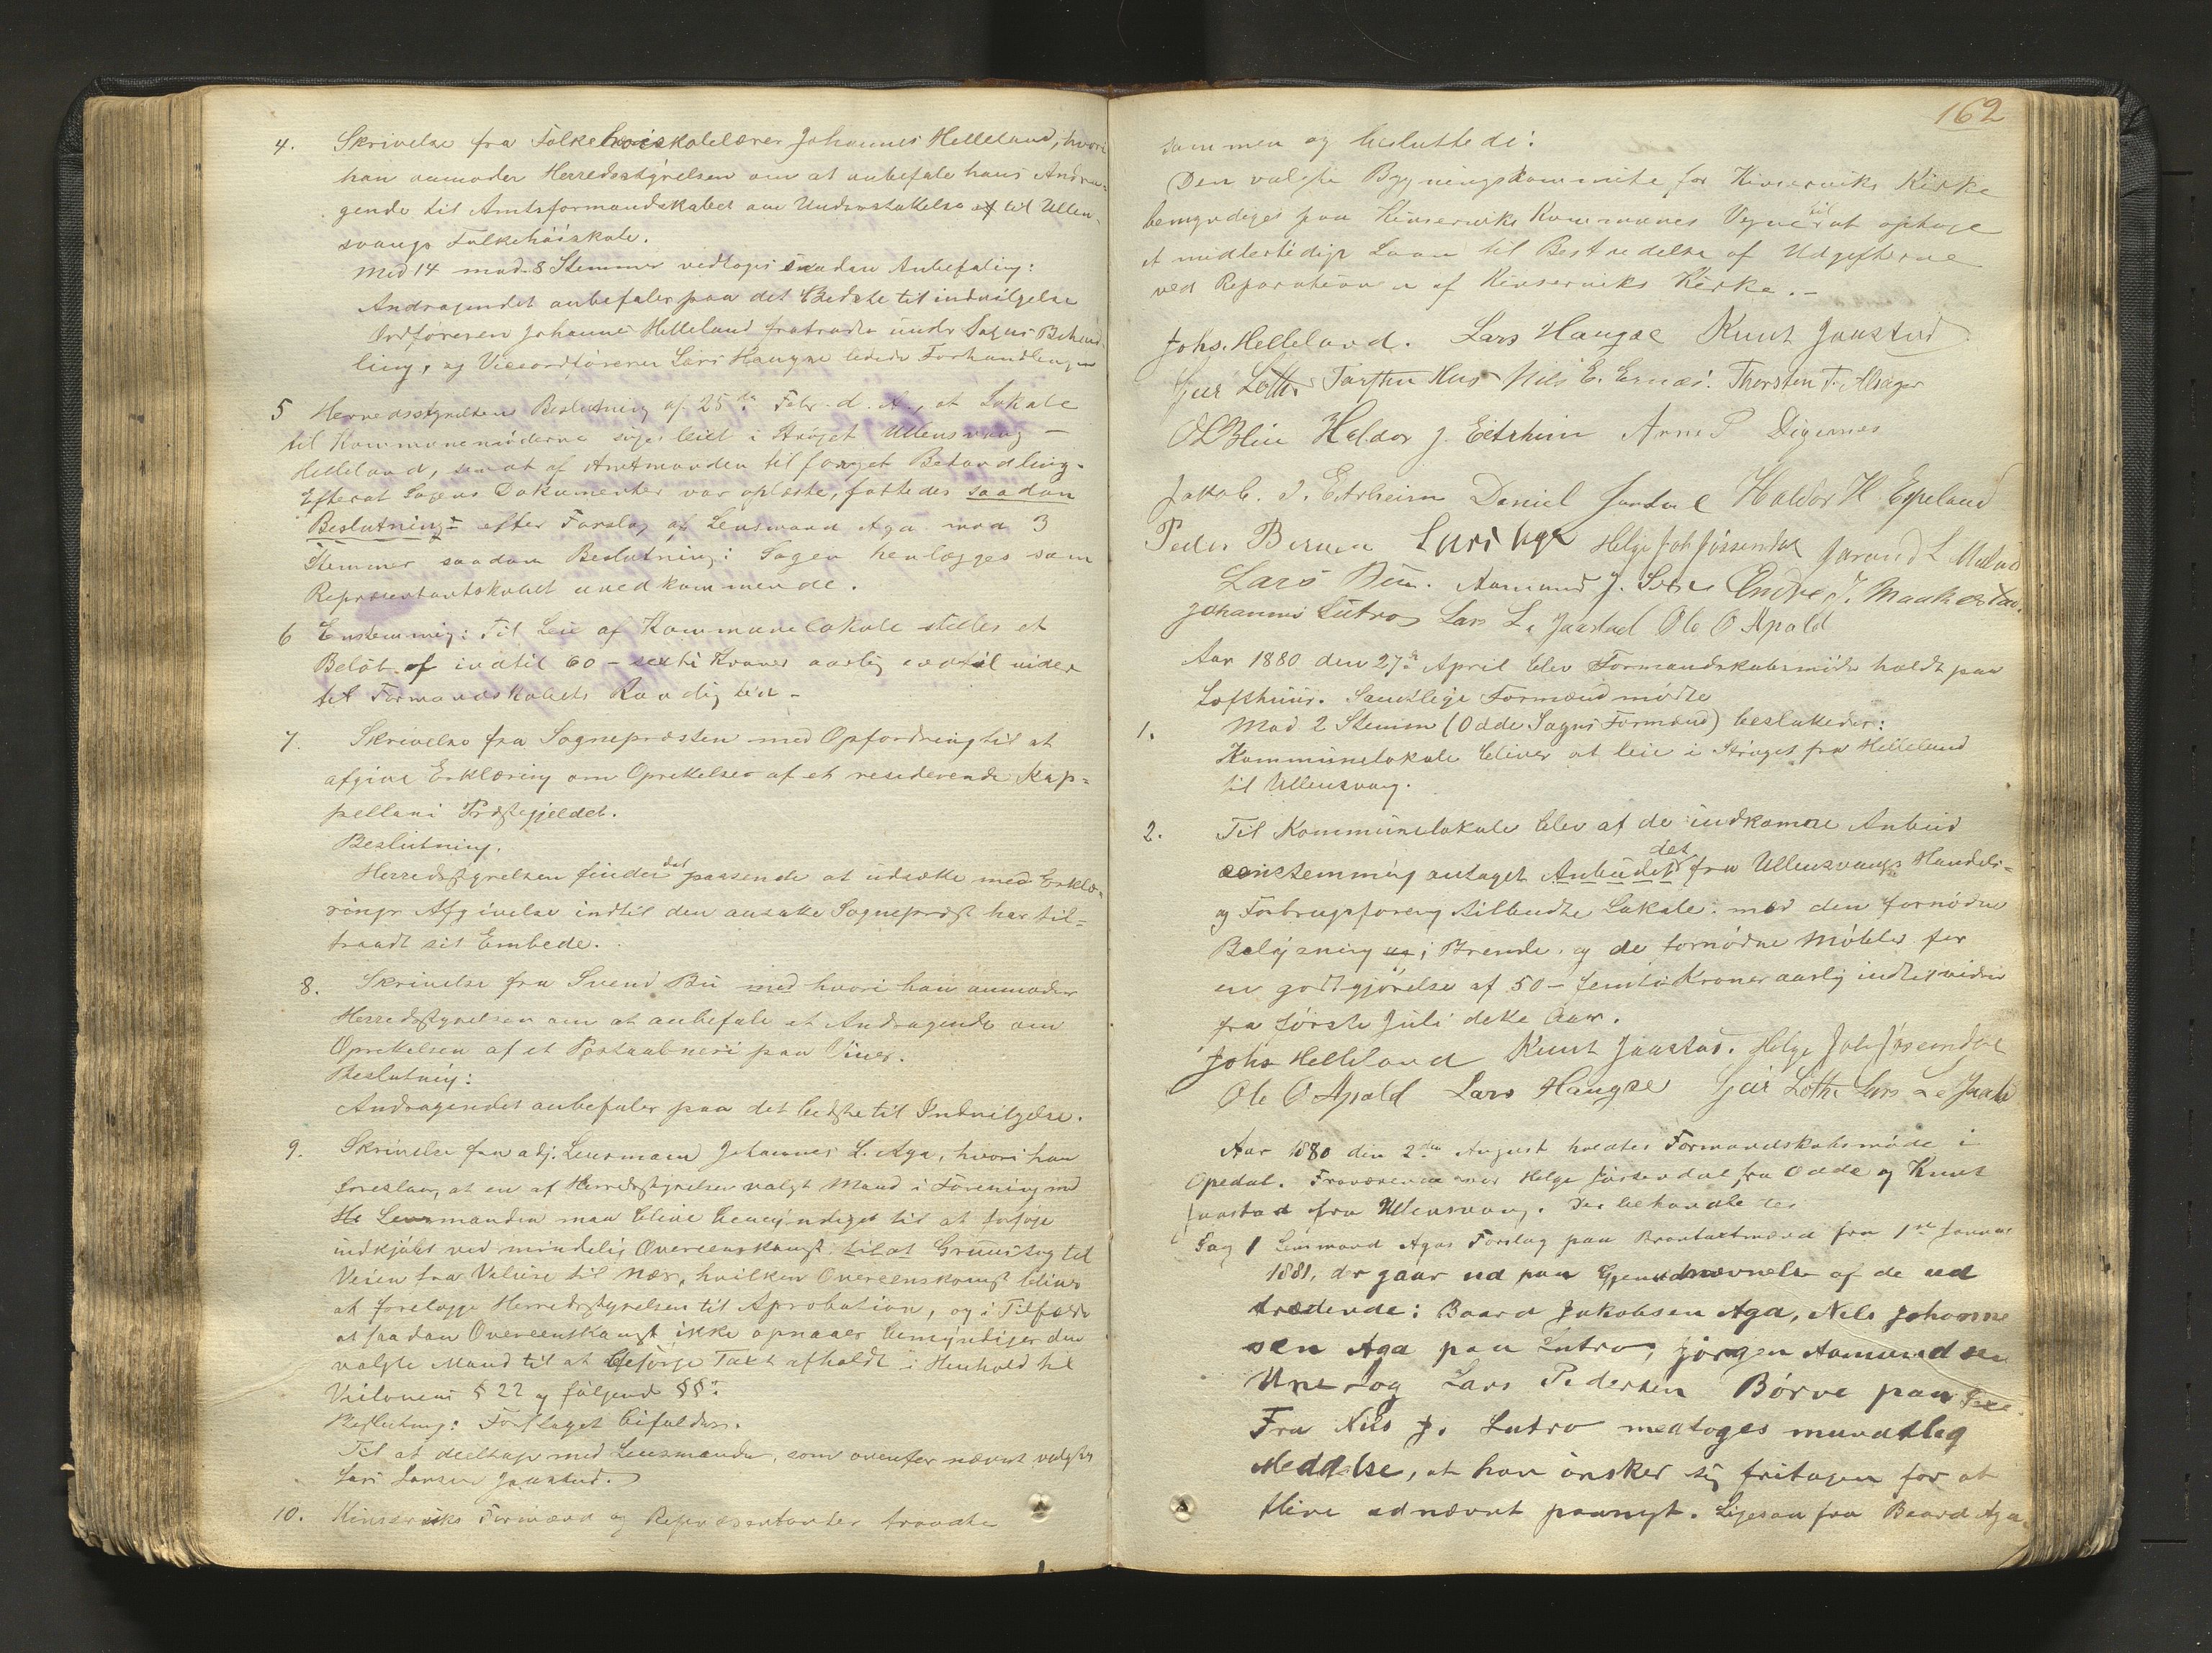 4. Skrivelse fra Folkehøiskolelærer Johannes Helleland, hvori
han anmoder Herredsstyrelsen om at anbefale hans Andra-
gende til Amtsformandskabet om Understøttelse af til Ullen-
svangs Folkehøiskole.
Med 14 mod 8 Stemmer vedtoges saadan Anbefaling:
Andragendet anbefales paa det Bedste til indvilgelse
Ordføreren Johannes Helleland fratraadte under Sagens Behand-
ling, og Viceordføreren Lars Haugse ledede Forhandlingen
5 Herredsstyrelsens Beslutning af 25de Febr. d. A., at Lokale
til Kommunemøderne søges leiet i Strøget Ullensvang -
Helleland, sendt af Amtmanden til fornyet Behandling.
Efterat Sagens Dokumenter var oplæste, fattedes saadan
Beslutning: efter Forslag af Lensmand Aga mod 3
Stemmer saadan Beslutning: Sagen henlægges som
Representantskabet uvedkommende.
6 Enstemmig: Til Leie af Kommunelokale stilles et
Beløb af indtil 60 - sexti Kroner aarlig indtil videre
til Formandskabets Raadighed -
7. Skrivelse fra Sognepræsten med Opfordring til at
afgive Erklæring om Oprettelse af et residerende Kap-
pellani Præstegjeldet.
Beslutning.
Herredsstyrelsen finder det passende at udsætte med Erklæ-
rings Afgivelse indtil den ansatte Sognepræst har til-
traadt sit Embede.
8. Skrivelse fra Svend Bu med hvori han anmoder
Herredsstyrelsen om at anbefale et Andragende om
Oprettelsen af et Postaabneri paa Vines.
Beslutning:
Andragendet anbefales paa det bedste til Indvilgelse.
9. Skrivelse fra adj. Lensmand Johannes L. Aga, hvori han
foreslaar, at en af Herredsstyrelsen valgt Mand i Forening med
He Lensmanden maa blive bemyndiget til at forsøge
indkjøbt ved mindelig Overeenskomst til at Gruustag til
Veien fra Velure til Næs, hvilken Overeenskomst bliver
at forelægge Herredsstyrelsen til Aprobation, og i Tilfælde
at saadan Overeenskomst ikke opnaaes bemyndiges den
valgte Mand til at besørge Taxt afholdt i Henhold til
Veilovens § 22 og følgende §§.
Beslutning: Forslaget bifaldes.
Til at deeltage med Lensmanden, som ovenfor nævnt valgtes
Lars Larsen Jaastad.
10. Kinserviks Formænd og Representanter traadte
162
sammen og besluttede:
Den valgte Bygningskommite for Kinserviks Kirke
bemyndiges paa Kinserviks Kommunes Vegne til at optage
et midlertidigt Laan til Bestridelse af Udgifterne
ved Reparationen af Kinserviks Kirke.-
Johs. Helleland. Lars Haugse Knut Jaastad
Gjeir Lothe Torsten Hus Nils E. Ernæs. Thorsten T. Alsager
O L Blie Heldor J. Eitrheim Arne P Digernes
Jakob. J. Eitrheim Daniel Jordal Haldor H. Espeland
Peder Bernæs Lars Aga Helge Joh Jøsendal Jarand L Maeland
Lars Bu. Aamund J. Sexe Endre J. Maakestad.
Johannes Lutro Lars L. Jaastad Ole O Apold
Aar 1880 den 27de April blev Formandskabsmøde holdt paa
Lofthuus. Samtlige Formænd mødte
1. Mod 2 Stemm (Odde Sogns Formænd) besluttedes:
Kommunelokale bliver at leie i Strøget fra Helleland
til Ullensvang.
2. Til Kommunelokale blev af de indkomne Anbud
eenstemmig antaget Anbudet det fra Ullensvangs Handels-
og Forbrugsforening tilbudte Lokale med den fornødne
Belysning og Brende og de fornødne Møbler for
en godtgjørelse af 50 - femti Kroner aarlig indtil videre
fra første Juli dette Aar.
Johs Helleland Knut Jaastad. Helge Joh Jøsendal
Ole O Apold Lars Haugse Gjeir Lothe Lars L. Jaastad
Aar 1880 den 2den August holdtes Formandskabsmøde i
Opedal. Fraværende var Helge Jøsendal fra Odde og Knut
Jaastad fra Ullensvang. Der behandledes
Sag 1 Lensmand Agas Forslag paa Brandtaxtmænd fra 1ste Januar
1881, der gaar ud paa Gjenudnævnelse af de ud
trædende: Baard Jakobsen Aga, Nils Johanne
sen Aga paa Lutro, Jørgen Aamundsen
Une og Lars Pedersen Børve paa
Fra Nils J. Lutro modtoges mundtlig
Meddelse, at han ønsker sig fritagen for at
blive udnævnt paanyt. Ligesaa fra Baard Aga.